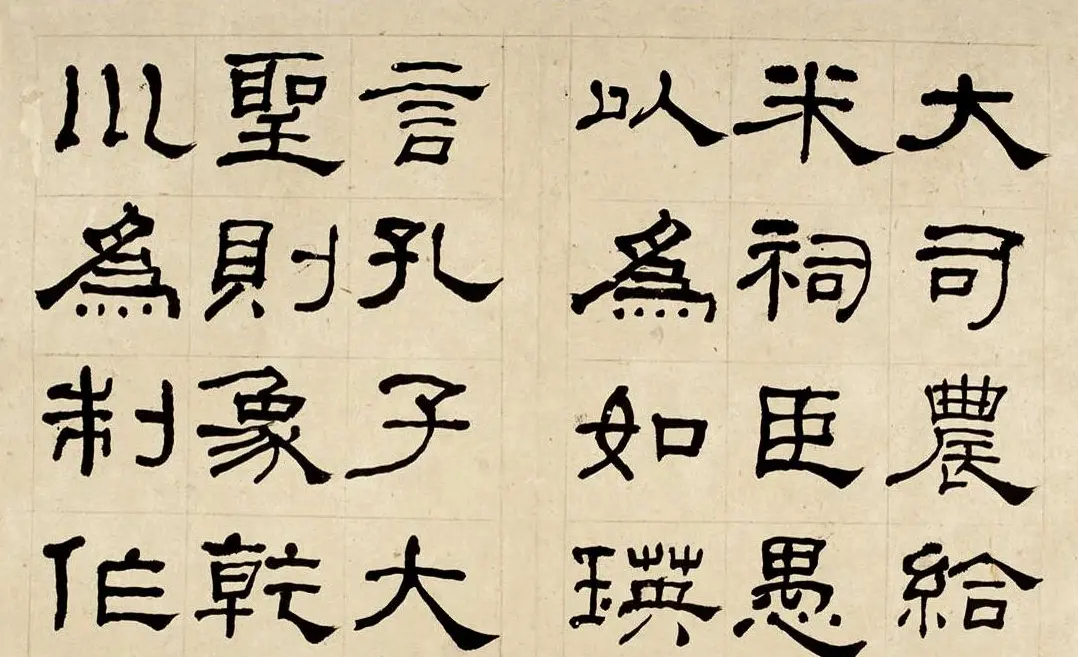 大司農給
米祠臣愚
以爲如瑛
言孔子大
聖則象乾
川爲制作